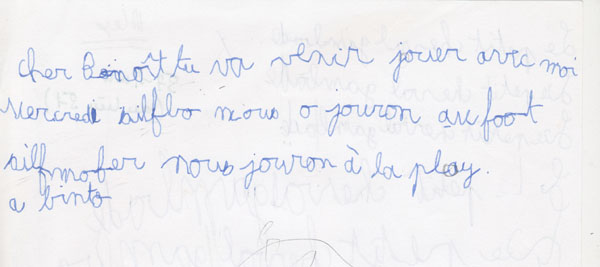 cher Benoît tu va venir jouer avec moi
Mercredi silfbo nous o jouron au foot
silfmofer nous jouron à la play.
a binto